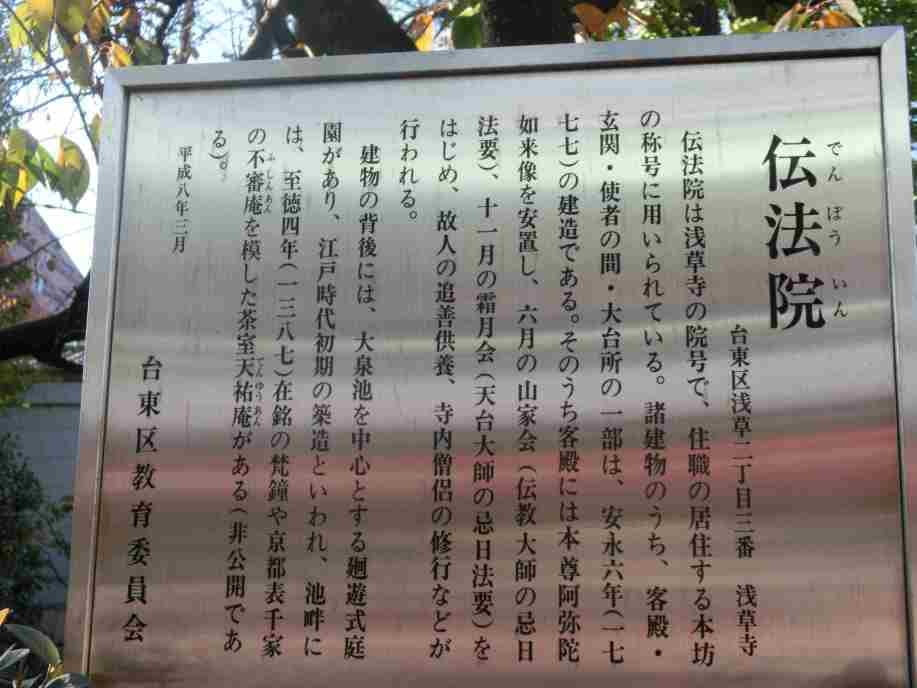 伝法院
でん ぽう いん
台東区浅草二丁目三番 浅草寺
伝法院は浅草寺の院号で、住職の居住する本坊
の称号に用いられている。諸建物のうち、客殿・
玄関・使者の間・大台所の一部は、安永六年(一七
七七)の建造である。そのうち客殿には本尊阿弥陀
如来像を安置し、六月の山家会(伝教大師の忌日
法要)、十一月の霜月会(天台大師の忌日法要)を
はじめ、故人の追善供養、寺内僧侶の修行などが
行われる。
建物の背後には、大泉池を中心とする廻遊式庭
園があり、江戸時代初期の築造といわれ、池畔に
は、至徳四年(一三八七)在銘の梵鐘や京都表千家
の不審庵を模した茶室天祐庵がある(非公開であ
ふしんあん てんゆうあん
る)。
平成八年三月
台東区教育委員会